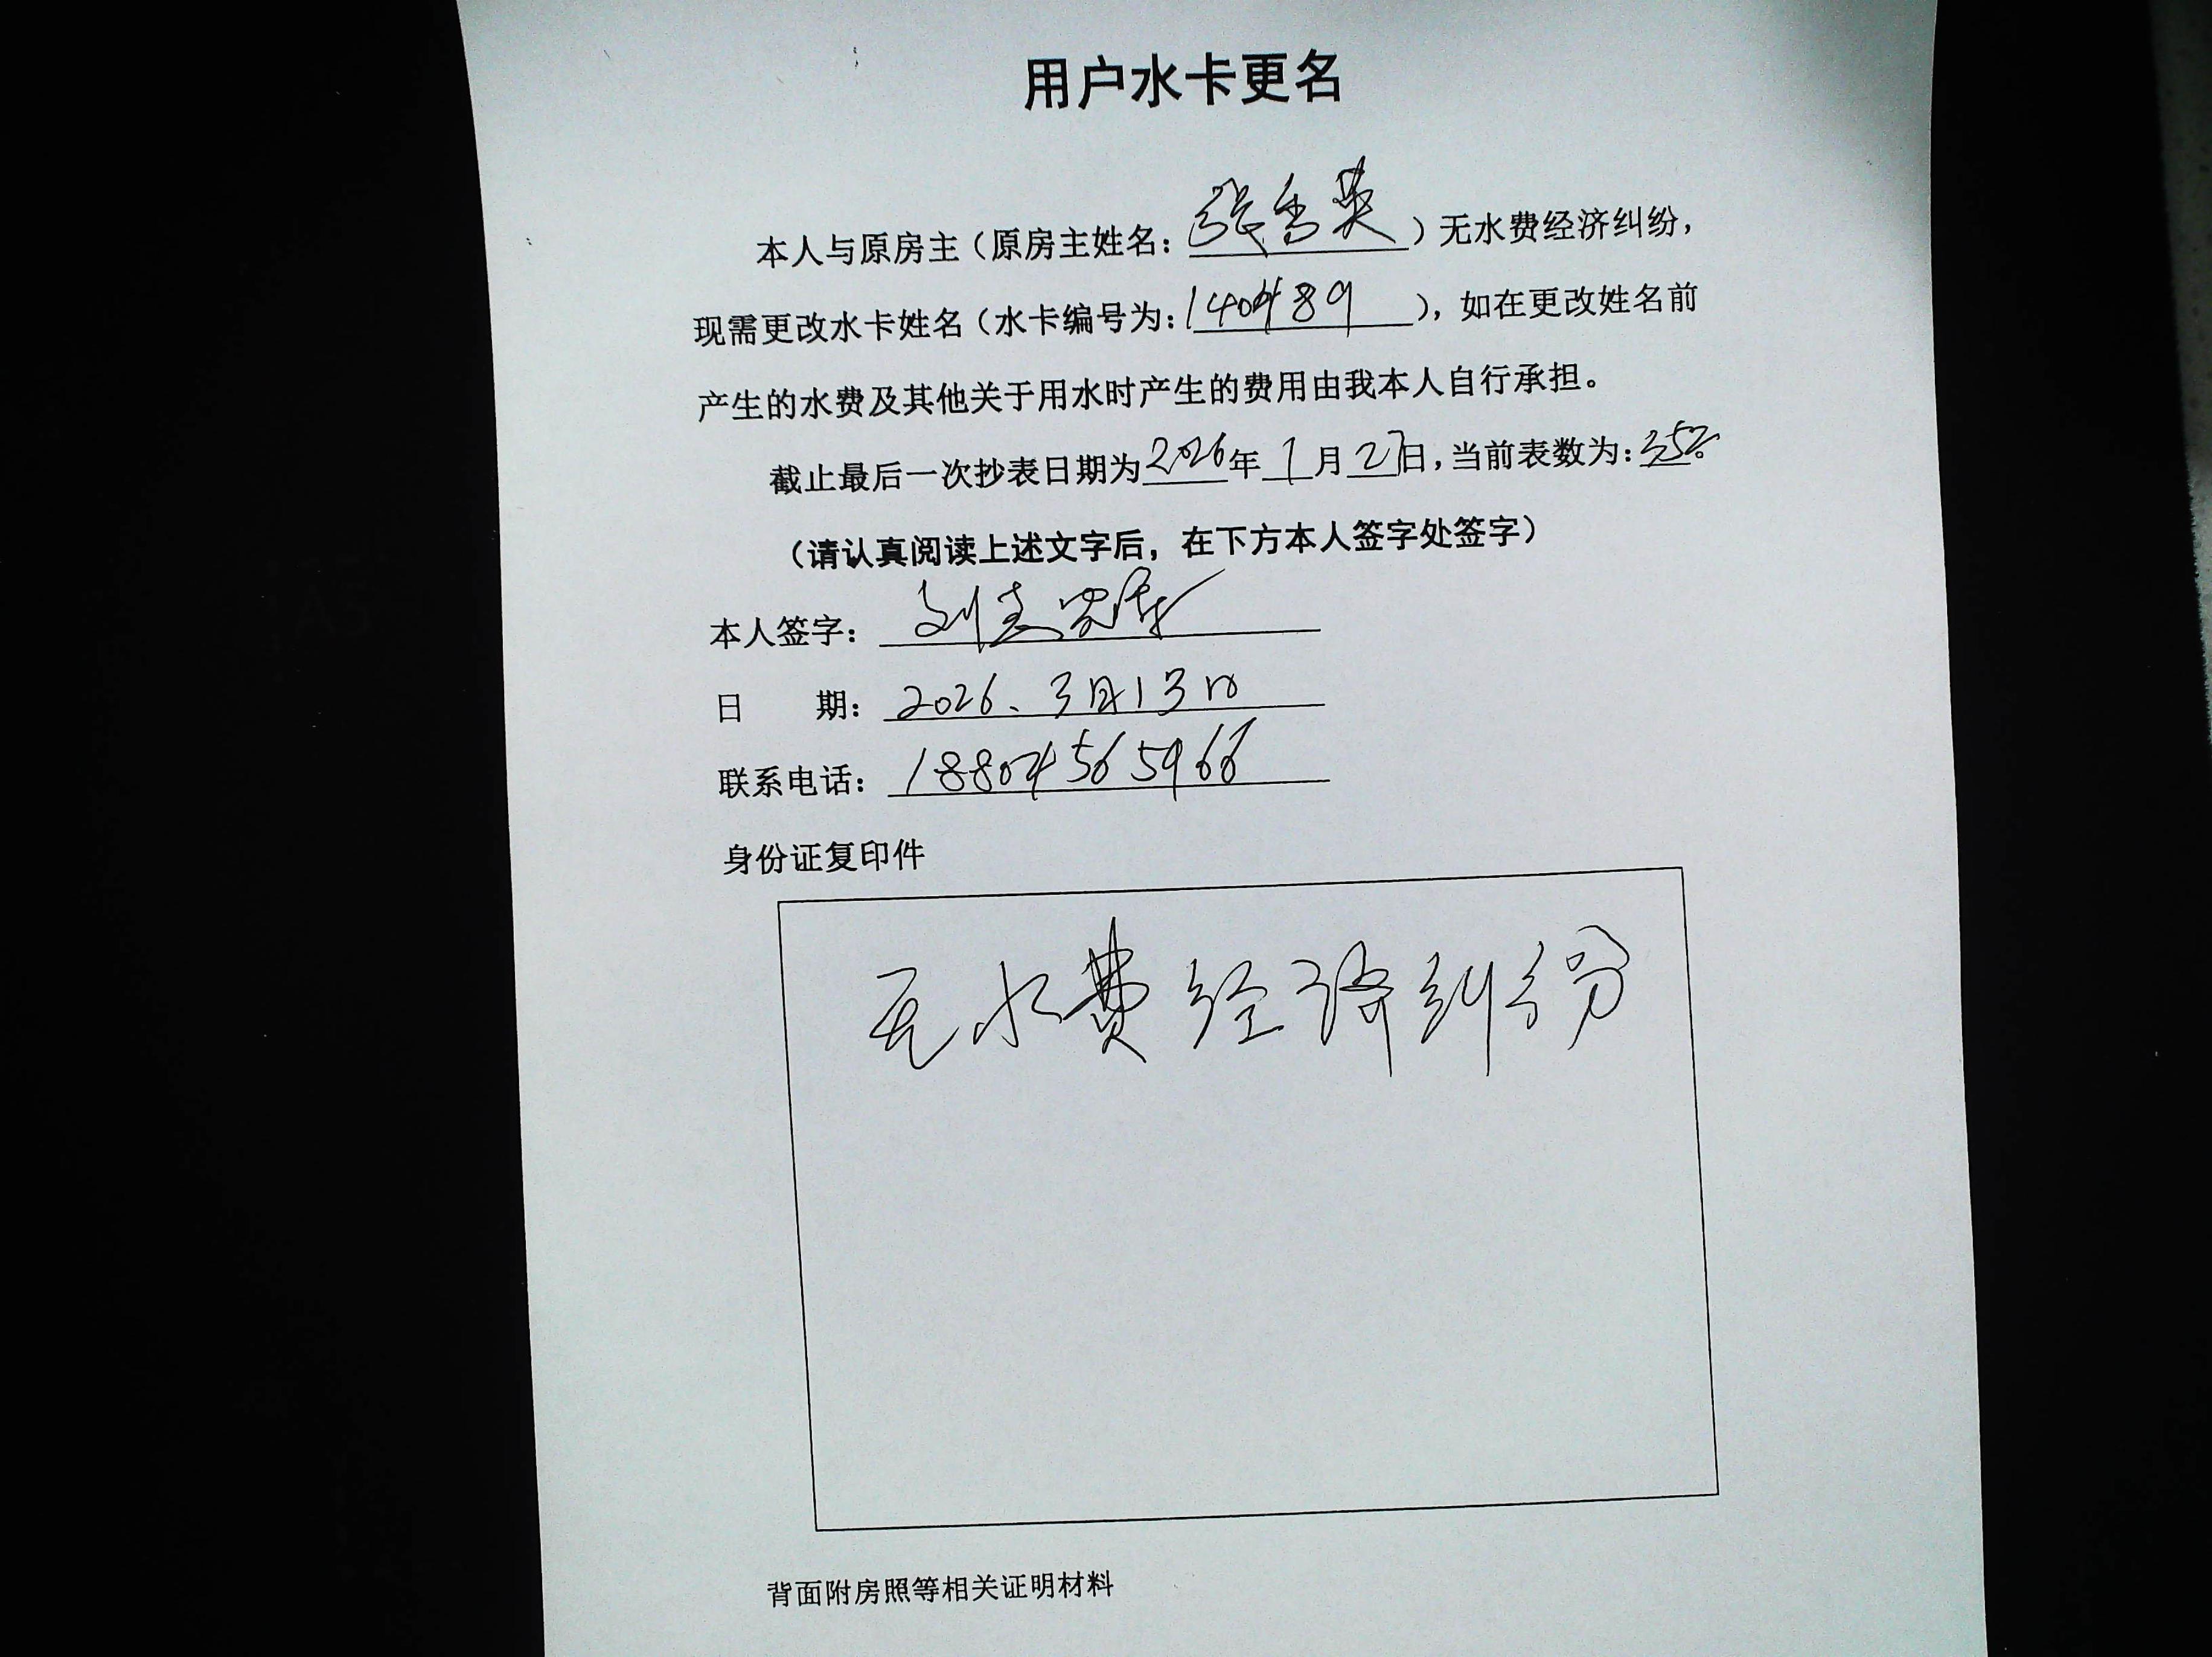 用户水卡更名
本人与原房主（原房主姓名：张秀英）无水费经济纠纷，
现需更改水卡姓名（水卡编号为：140489），如在更改姓名前
产生的水费及其他关于用水时产生的费用由我本人自行承担。
截止最后一次抄表日期为2026年1月27日，当前表数为：
（请认真阅读上述文字后，在下方本人签字处签字）
本人签字：刘
日 期：2026、3月13日
联系电话：18804565966
身份证复印件
无水费经济纠纷
背面附房照等相关证明材料